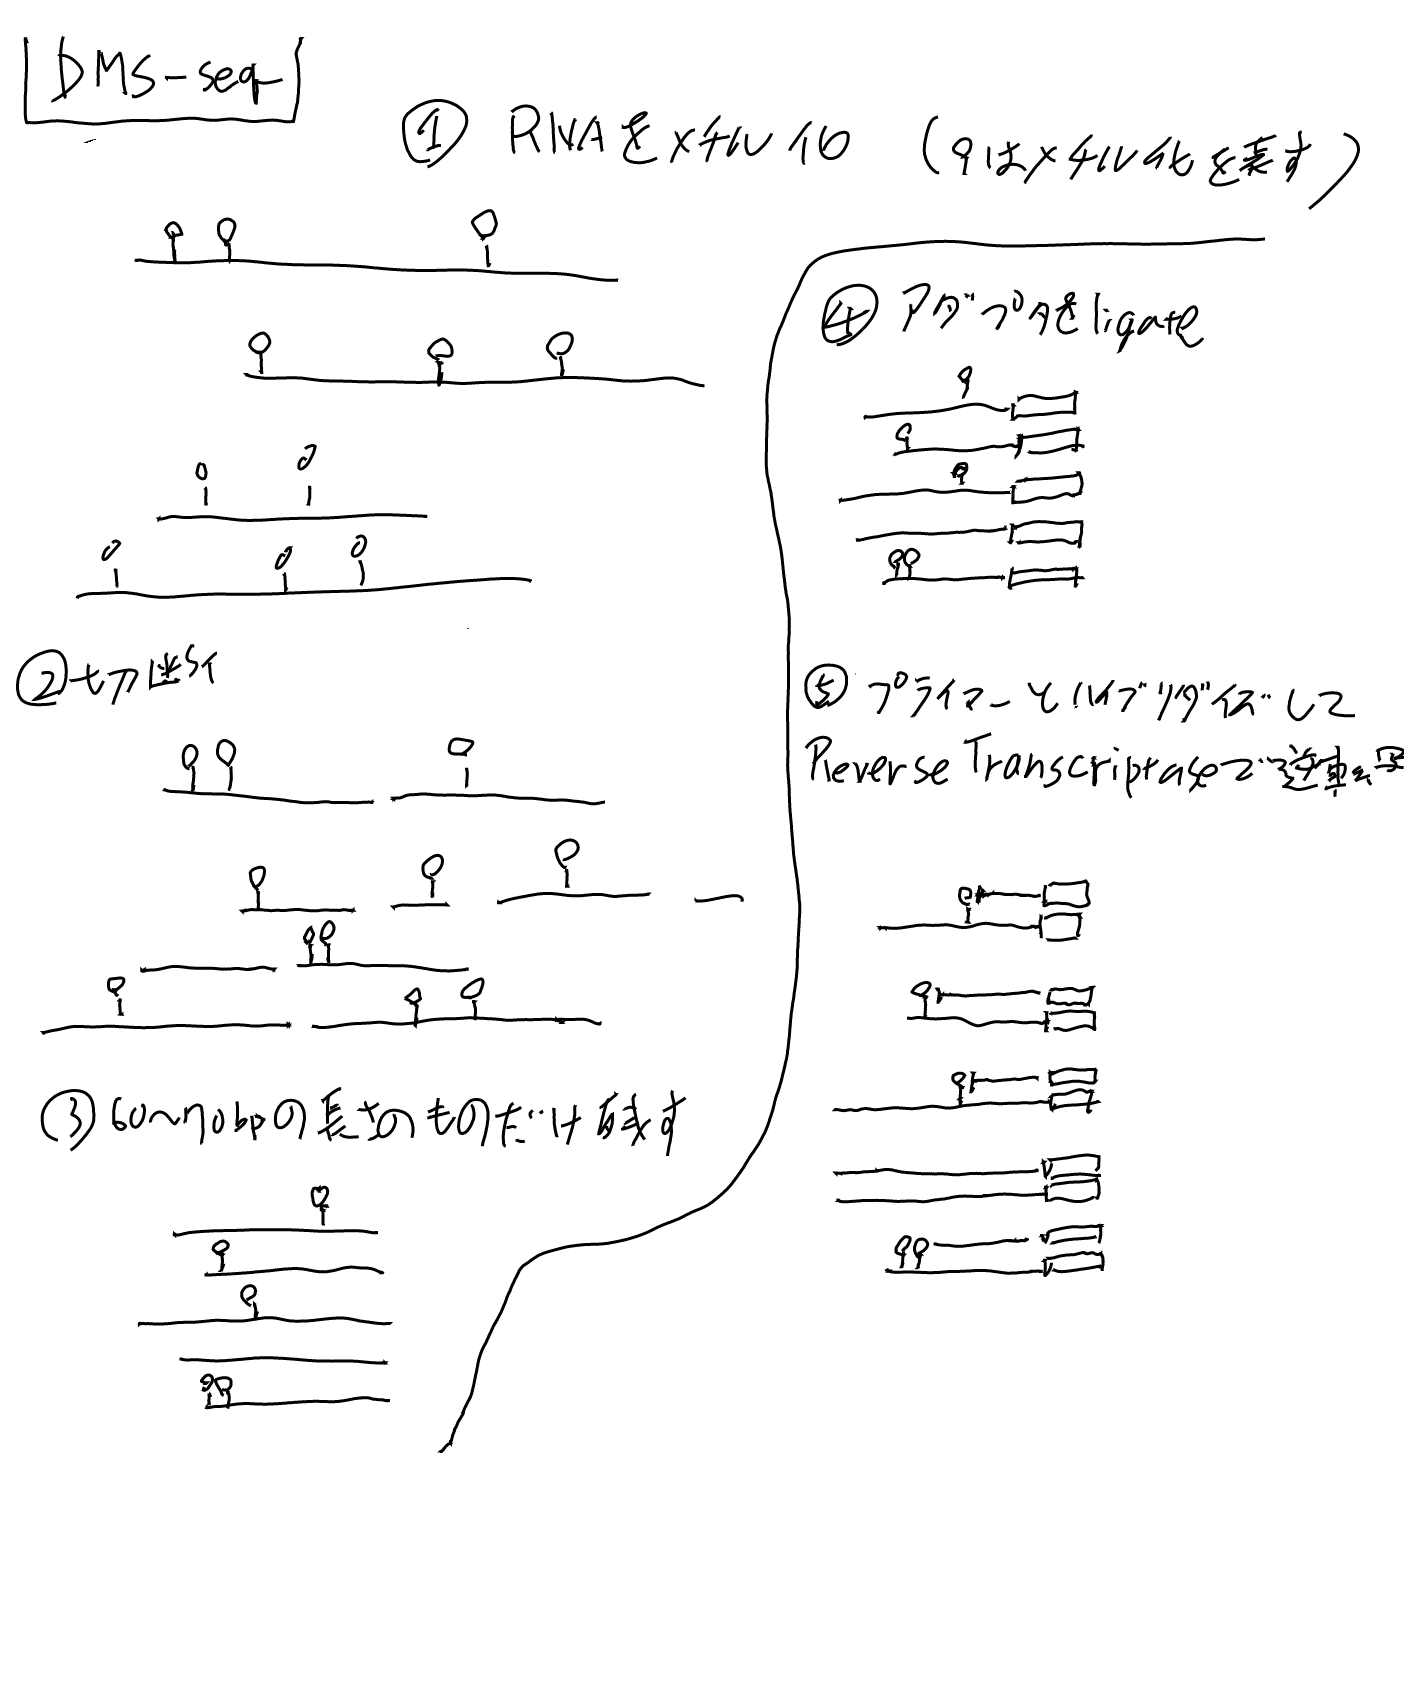 DMS-seq
① RNAをメチル化 (⚲はメチル化を表す)
②切断
③60~70bpの長さのものだけ残す
④アダプタをligate
⑤プライマーとハイブリダイズして
Reverse Transcriptaseで逆転写